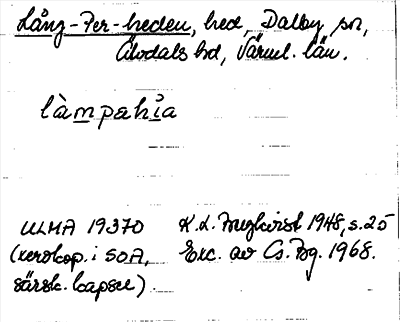 Lång-Per-heden, hed, Dalby sn,
Älvdals hd, Värml. län.
làmpəhìa
ULMA 19370 K.L. Bugkvist 1948, s. 25
(xerokop. i SOA, Exc. av Cs. Bg. 1968.
särsk. kapsel).